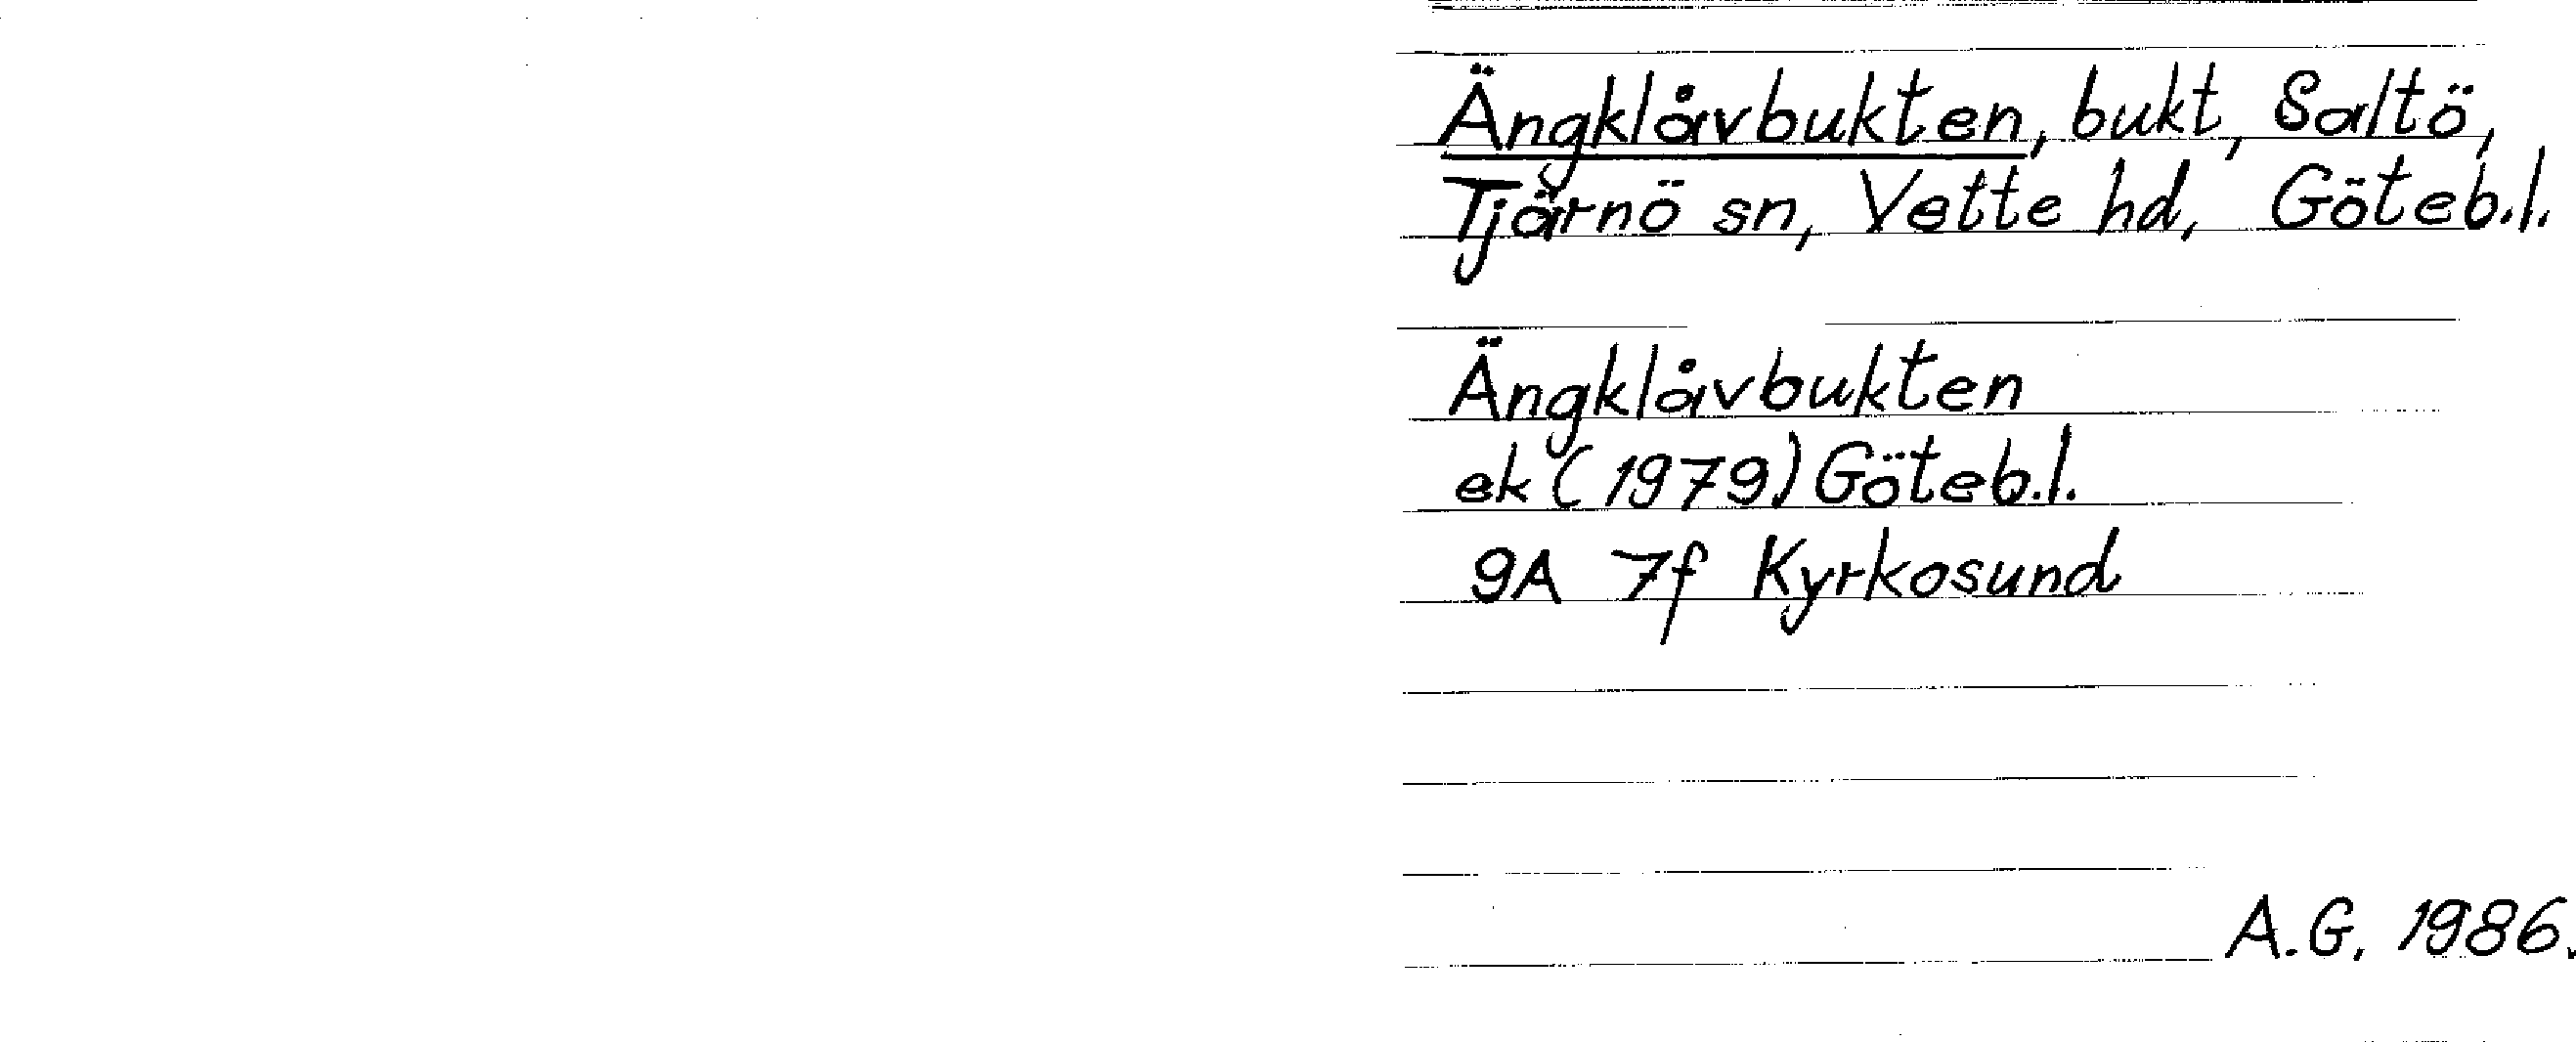 Ängklåvbukten, bukt, Saltö,
Tjärnö sn, Vette hd, Göteb.l.
Ängklåvbukten
ek (1979) Göteb.l.
9A 7f Kyrkosund
A.G. 1986.